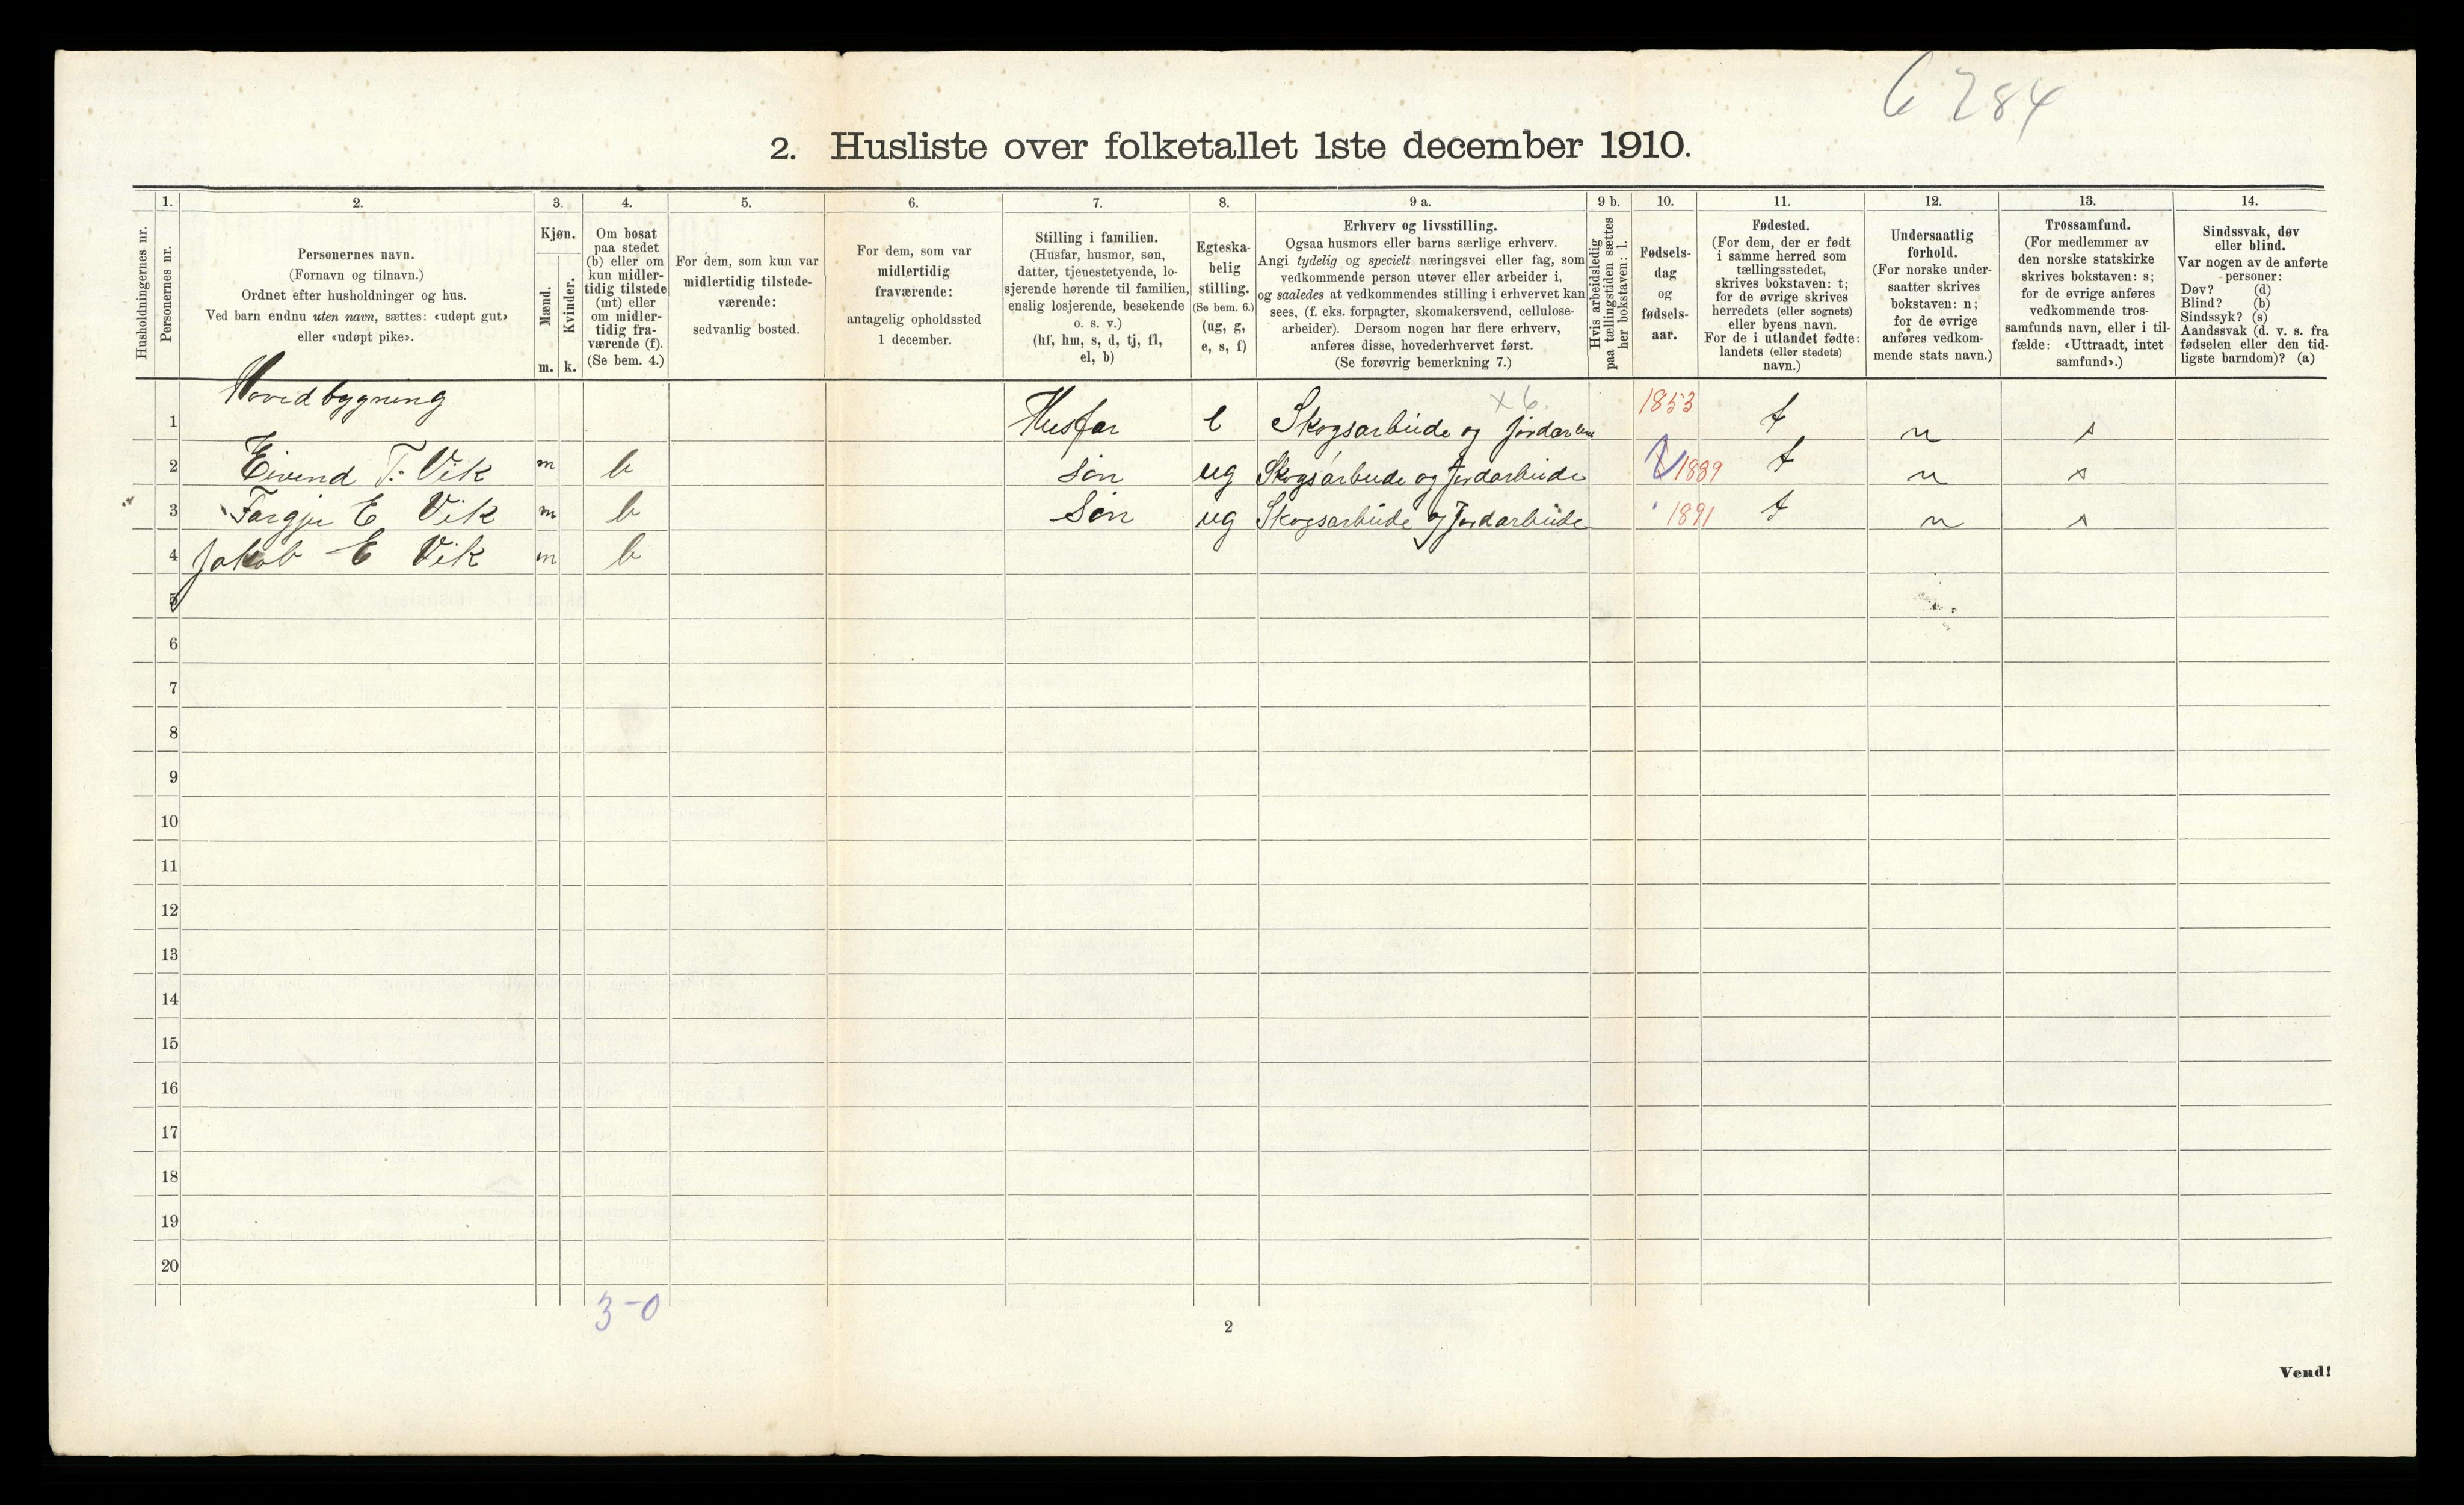 6284
2. Husliste over folketallet 1ste december 1910.
Husholdningernes nr.
1.
Personernes nr.
2.
Personernes navn.
(Fornavn og tilnavn.)
Ordnet efter husholdninger og hus.
Ved barn endnu uten navn, sættes: «udøpt gut»
eller «udøpt pike».
3.
Kjøn.
Mænd.
Kvinder.
m. k.
4.
Om bosat
paa stedet
(b) eller om
kun midler-
tidig tilstede
(mt) eller
om midler-
tidig fra-
værende (f).
(Se bem. 4.)
5.
For dem, som kun var
midlertidig tilstede-
værende:
sedvanlig bosted.
6.
For dem, som var
midlertidig
fraværende:
antagelig opholdssted
1 december.
7.
Stilling i familien.
(Husfar, husmor, søn,
datter, tjenestetyende, lo-
sjerende hørende til familien,
enslig losjerende, besøkende
o. s. v.)
(hf, hm, s, d, tj, fl,
el, b)
8.
Egteska-
belig
stilling.
(Se bem. 6.)
(ug, g,
e, s, f)
9 a.
Erhverv og livsstilling.
Ogsaa husmors eller barns særlige erhverv.
Angi tydelig og specielt næringsvei eller fag, som
vedkommende person utøver eller arbeider i,
og saaledes at vedkommendes stilling i erhvervet kan
sees, (f. eks. forpagter, skomakersvend, cellulose-
arbeider). Dersom nogen har flere erhverv,
anføres disse, hovederhvervet først.
(Se forøvrig bemerkning 7.)
9 b.
Hvis arbeidsledig
paa tællingstiden sættes
her bokstaven: l.
10.
Fødsels-
dag
og
fødsels-
aar.
11.
Fødested.
(For dem, der er født
i samme herred som
tællingsstedet,
skrives bokstaven: t;
for de øvrige skrives
herredets (eller sognets)
eller byens navn.
For de i utlandet fødte:
landets (eller stedets)
navn.)
12.
Undersaatlig
forhold.
(For norske under-
saatter skrives
bokstaven: n;
for de øvrige
anføres vedkom-
mende stats navn.)
13.
Trossamfund.
(For medlemmer av
den norske statskirke
skrives bokstaven: s;
for de øvrige anføres
vedkommende tros-
samfunds navn, eller i til-
fælde: «Uttraadt, intet
samfund».)
14.
Sindssvak, døv
eller blind.
Var nogen av de anførte
personer:
Døv? (d)
Blind? (b)
Sindssyk? (s)
Aandssvak (d. v. s. fra
fødselen eller den tid-
ligste barndom)? (a)
Hovedbygning
x 6.
1 Husfar e Skogsarbeide og jordar 1853 t n s
2 Eivind T. Vik m b Søn ug Skogsarbeide og Jordarbeide 1889 t n s
3 Targjer E Vik m b Søn ug Skogsarbeide og Jordarbeide 1891 t n s
4 Jakob E Vik m b
5
6
7
8
9
10
11
12
13
14
15
16
17
18
19
20
3-0
2
Vend!